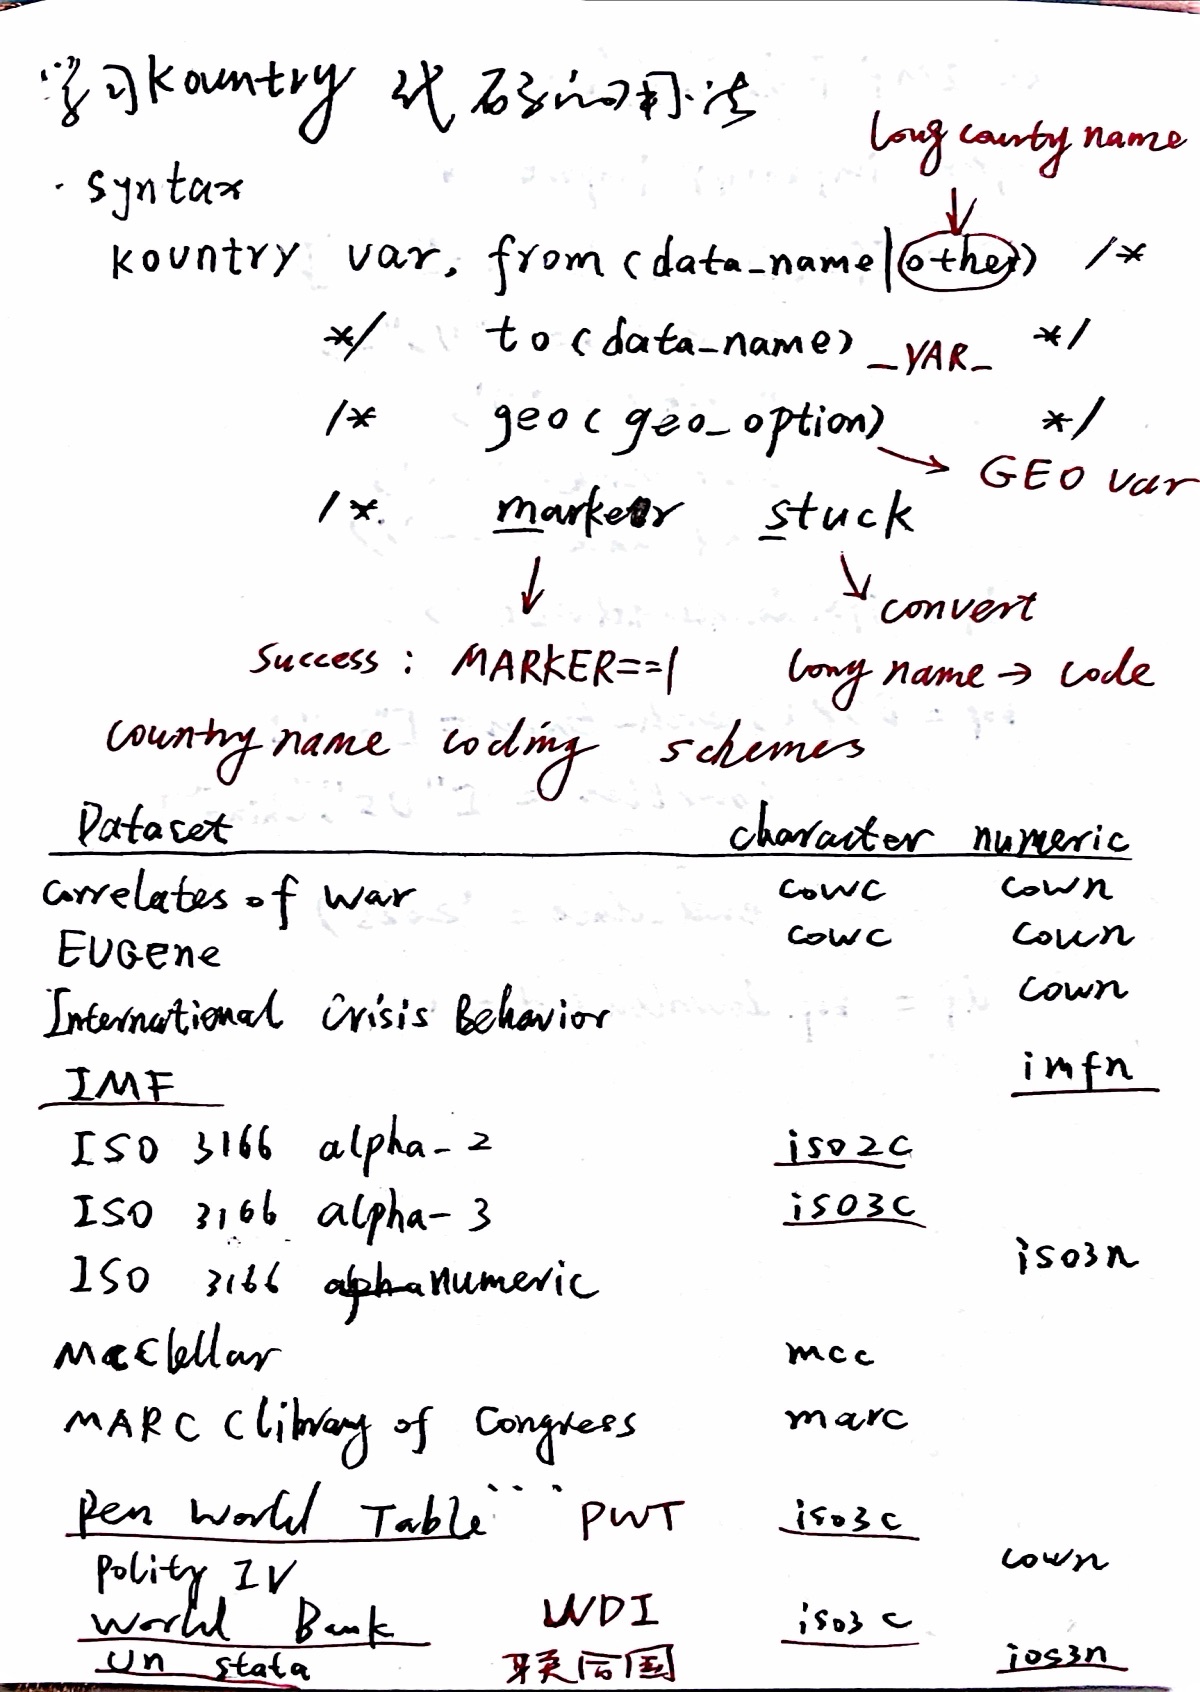 学习kountry 代码的用法
long county name
· syntax
kountry var, from (data_name|other) /*
*/ to (data_name) _VAR_ */
/* geo (geo_option) */
GEO var
/*. marker stuck
convert
Success : MARKER==1 long name → code
country name coding schemes
Dataset character numeric
Correlates of war cowc cown
EUGene cowc cown
International Crisis Behavior cown
IMF imfn
ISO 3166 alpha-2 iso2c
ISO 3166 alpha-3 iso3c
ISO 3166 numeric iso3n
McClellar mcc
MARC (library of Congress marc
Pen World Table PWT iso3c
Polity IV cown
World Bank WDI iso3c
Un stata 联合国 ios3n